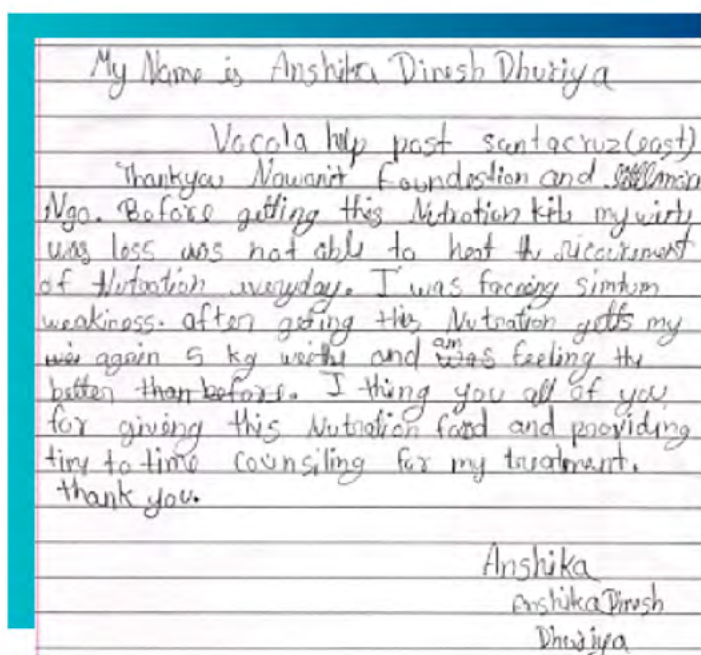 My Name is Anshika Dinesh Dhuriya
Vacola help post santacruz(east)
Thankyou Nowanit foundestion and
Ngo. Before getting this Nutration kits my
was loss was not able to the
of Nutration everyday. I was faceing simtum
weakiness. after geting this Nutration my
again 5 kg and am feeling the
better than before. I thing you all of you
for giving this Nutration food and providing
time to time counsiling for my treatment.
thank you.
Anshika
Anshika Dinesh
Dhuriya